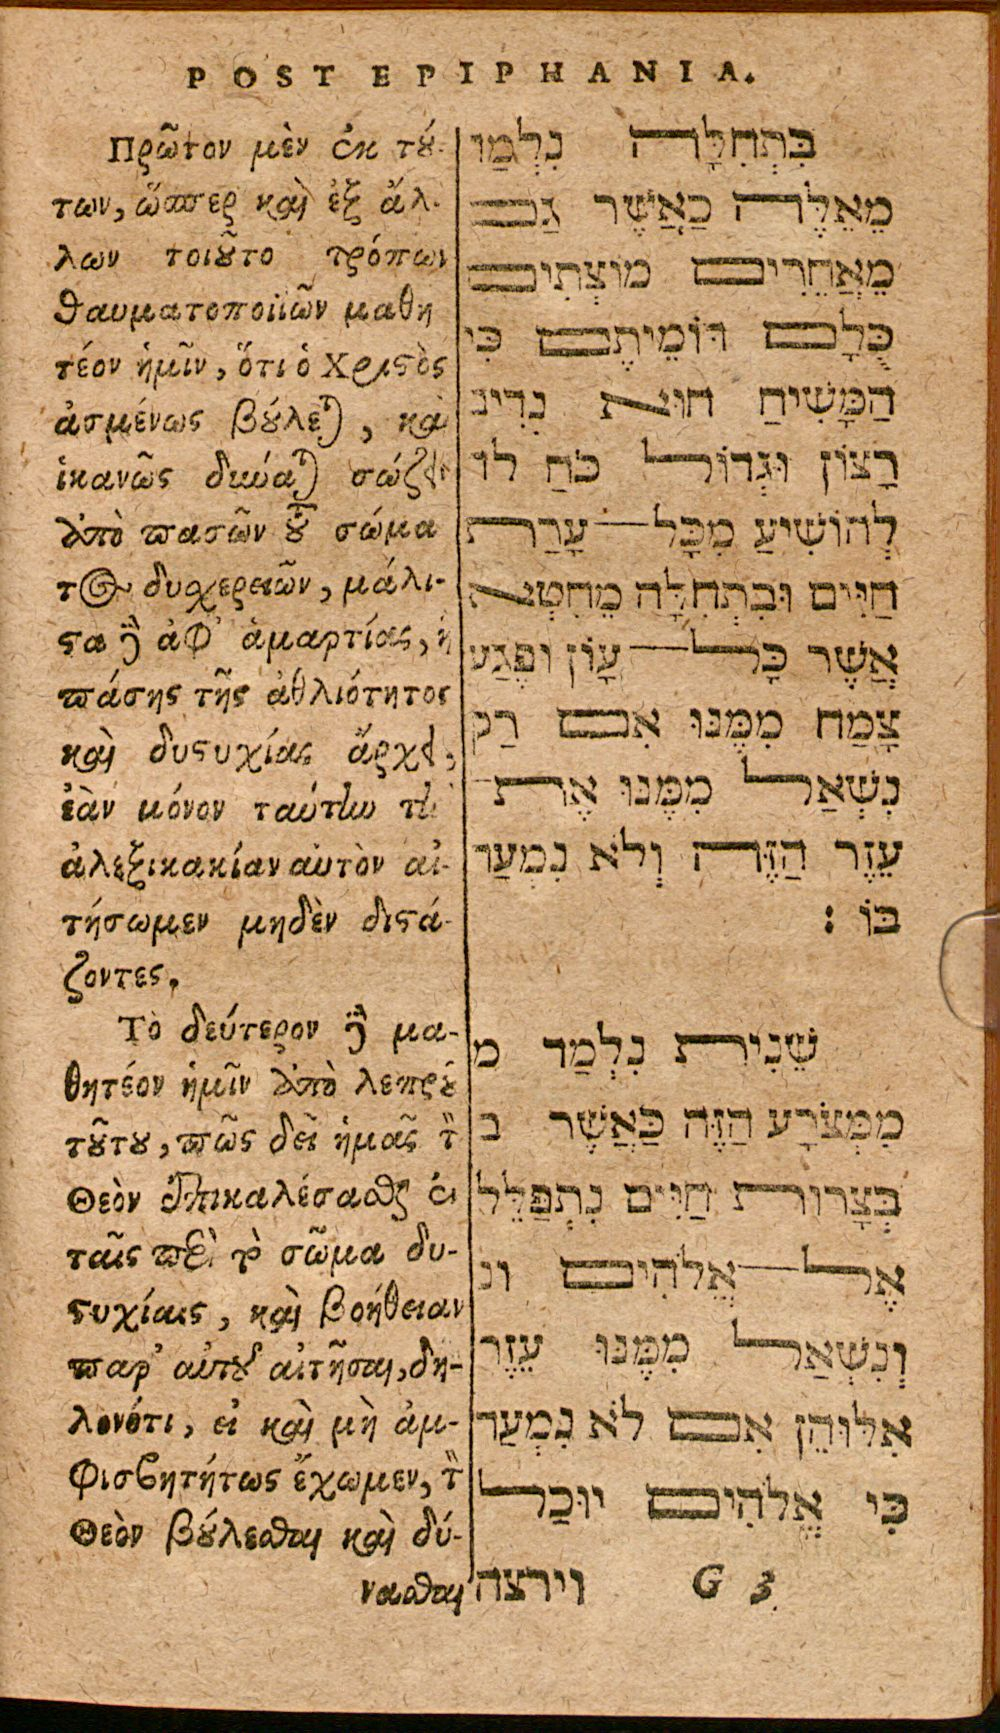 POST EPIPHANIA.
Πρῶτον μὲν ἐκ τού-
των, ὥσπερ καὶ ἐξ ἄλ-
λων τοιοῦτο τρόπων
θαυματοποιϊῶν μαθη
τέον ἡμῖν, ὅτι ὁ Χριστὸς
ἀσμένως βούλεται, καὶ
ἱκανῶς δύναται σώζειν
ἀπὸ πασῶν τοῦ σώμα
τος δυχερειῶν, μάλι-
στα δὲ ἀφ' ἁμαρτίας, ἡ
πάσης τῆς ἀθλιότητος
καὶ δυστυχίας ἄρχει,
ἐὰν μόνον ταύτην τὴν
ἀλεξικακίαν αὐτὸν αἰ-
τήσωμεν μηδὲν διστά-
ζοντες.
Τὸ δεύτερον δὲ μα-
θητέον ἡμῖν ἀπὸ λεπροῦ
τούτου, πῶς δεῖ ἡμᾶς τὸν
Θεὸν ἐπικαλέσασθαι ἐν
ταῖς περὶ τὸ σῶμα δυ-
στυχίαις, καὶ βοήθειαν
παρ' αὐτοῦ αἰτῆσαι, δη-
λονότι, εἰ καὶ μὴ ἀμ-
φισβητήτως ἔχωμεν, τὸν
Θεὸν βούλεσθαι καὶ δύ-
νασθαι
בִּתְחִלָּה נִלְמַו
מֵאֵלֶּה כַּאֲשֶׁר גַּם
מֵאֲחֵרִים מוֹצְתִים
כֻּלָּם דּוֹמֵיתֶם כִּי
הַמָּשִׁיחַ הוּא נְדִינ
רָצוֹן וּגְדוֹל כֹּחַ לו
לְהוֹשִׁיעַ מִכָּל־עָרַת
חַיִּים וּבִתְחִלָּה מֵחִטְא
אֲשֶׁר כָּל־עָוֹן וּפֶגַע
צָמַח מִמֶּנּוּ אִם רַק
נִשְׁאַל מִמֶּנּוּ אֶת־
עֵזֶר הַזֶּה וְלֹא נִמְעַר
בּוֹ :
שֵׁנִית נִלְמַד מ
מִמְּצֹרָע הַזֶּה כַּאֲשֶׁר ב
בְּצָרוֹת חַיִּים נִתְפַּלֵּל
אֶל־אֱלֹהִים ונ
וְנִשְׁאַל מִמֶּנּוּ עֵזֶר
אִלּוּהֵן אִם לֹא נִמְעַר
כִּי אֱלֹהִים יוּכַל
וירצה
G 3.